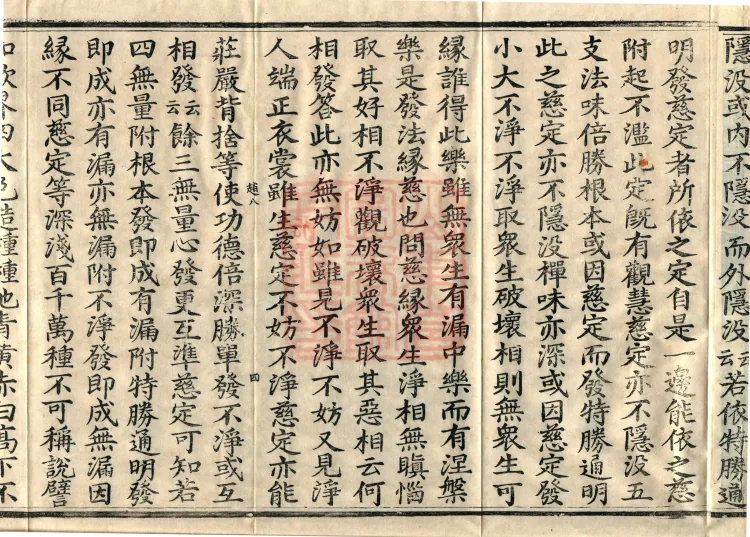 隱沒或內不隱沒而外隱沒云云若依特勝通
明發慈定者所依之定自是一邊能依之慈
附起不濫此定旣有觀慧慈定亦不隱沒五
支法味倍勝根本或因慈定而發特勝通明
此之慈定亦不隱沒禪味亦深或因慈定發
小大不淨不淨取衆生破壞相則無衆生可
緣誰得此樂雖無衆生有漏中樂而有涅槃
樂是發法緣慈也問慈緣衆生淨相無瞋惱
取其好相不淨觀破壞衆生取其惡相云何
相發答此亦無妨如雖見不淨不妨又見淨
人端正衣裳雖生慈定不妨不淨慈定亦能
趙八 四
莊嚴背捨等使功德倍深勝單發不淨或互
相發云云餘三無量心發更互準慈定可知若
四無量附根本發即成有漏附特勝通明發
即成亦有漏亦無漏附不淨發即成無漏因
緣不同慈定等深淺百千萬種不可稱說譬
如欲界四大色造種種地青黃赤白高下不